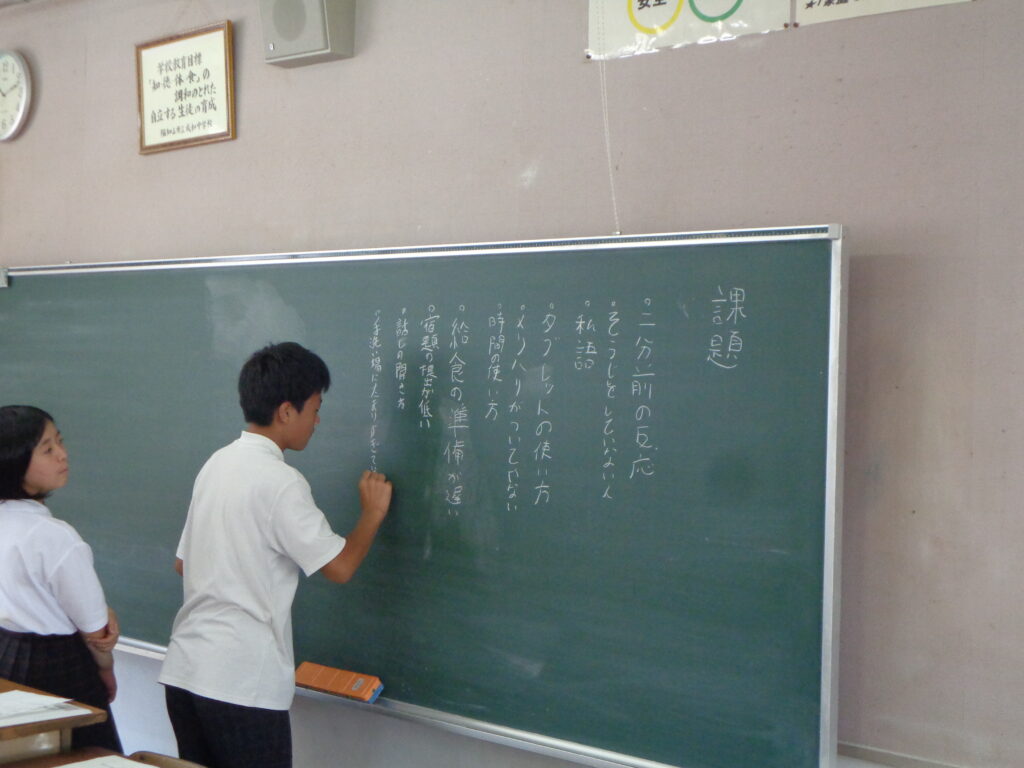 安全
学校教育目標
「知・徳・体・食」の
調和のとれた
自立する生徒の育成
福知山市立成和中学校
課題
・二分前の反応
・そうじをしていない人
・私語
・タブレットの使い方
・メリハリがついていない
・時間の使い方
・給食の準備が遅い
・宿題の提出が低い
・話しの聞き方
・手洗い場に人が